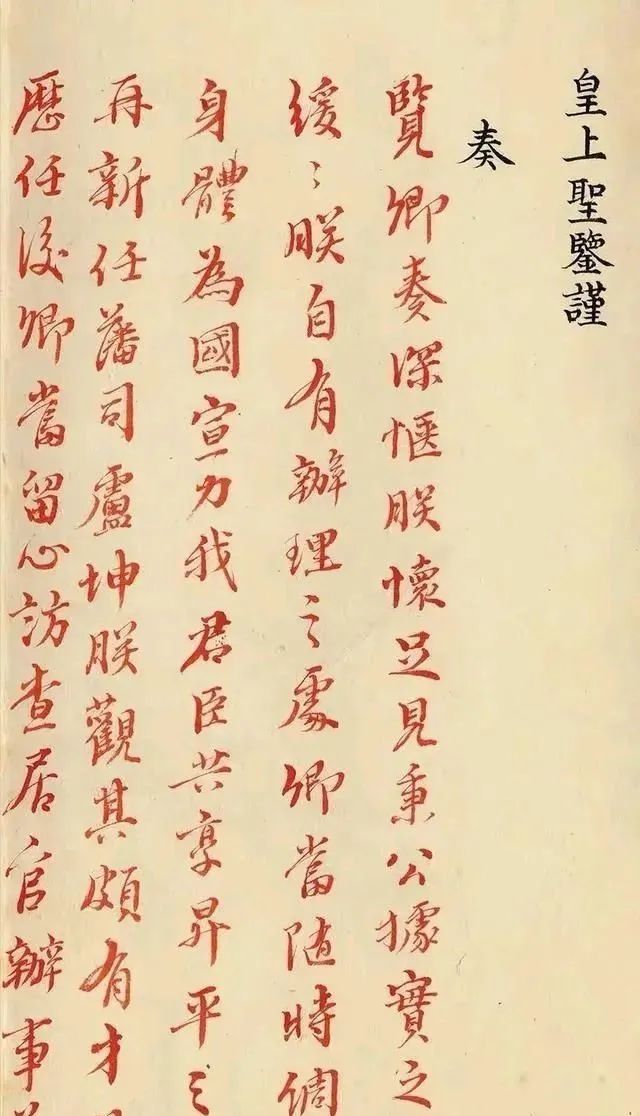 皇上聖鑒謹
奏
覽卿奏深愜朕懷足見秉公據實之
緩〻朕自有辦理之處卿當随時倜
身體為國宣力我君臣共享昇平之
再新任藩司盧坤朕觀其頗有才
歷任後卿當留心訪查居官辦事